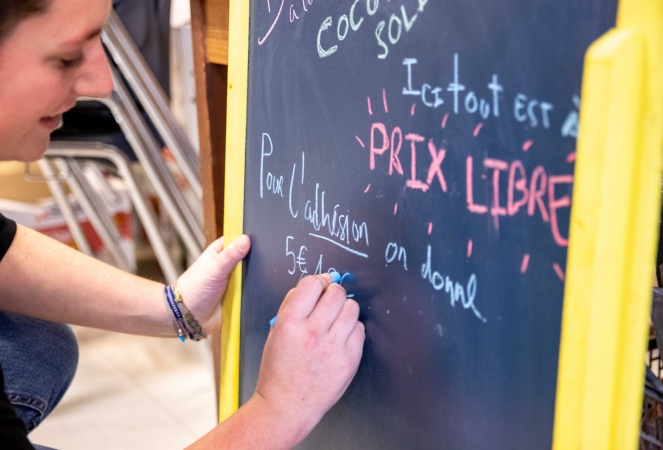 COCO
SOLI
Ici tout est à
PRIX LIBRE
Pour l'adhésion on donne
5€